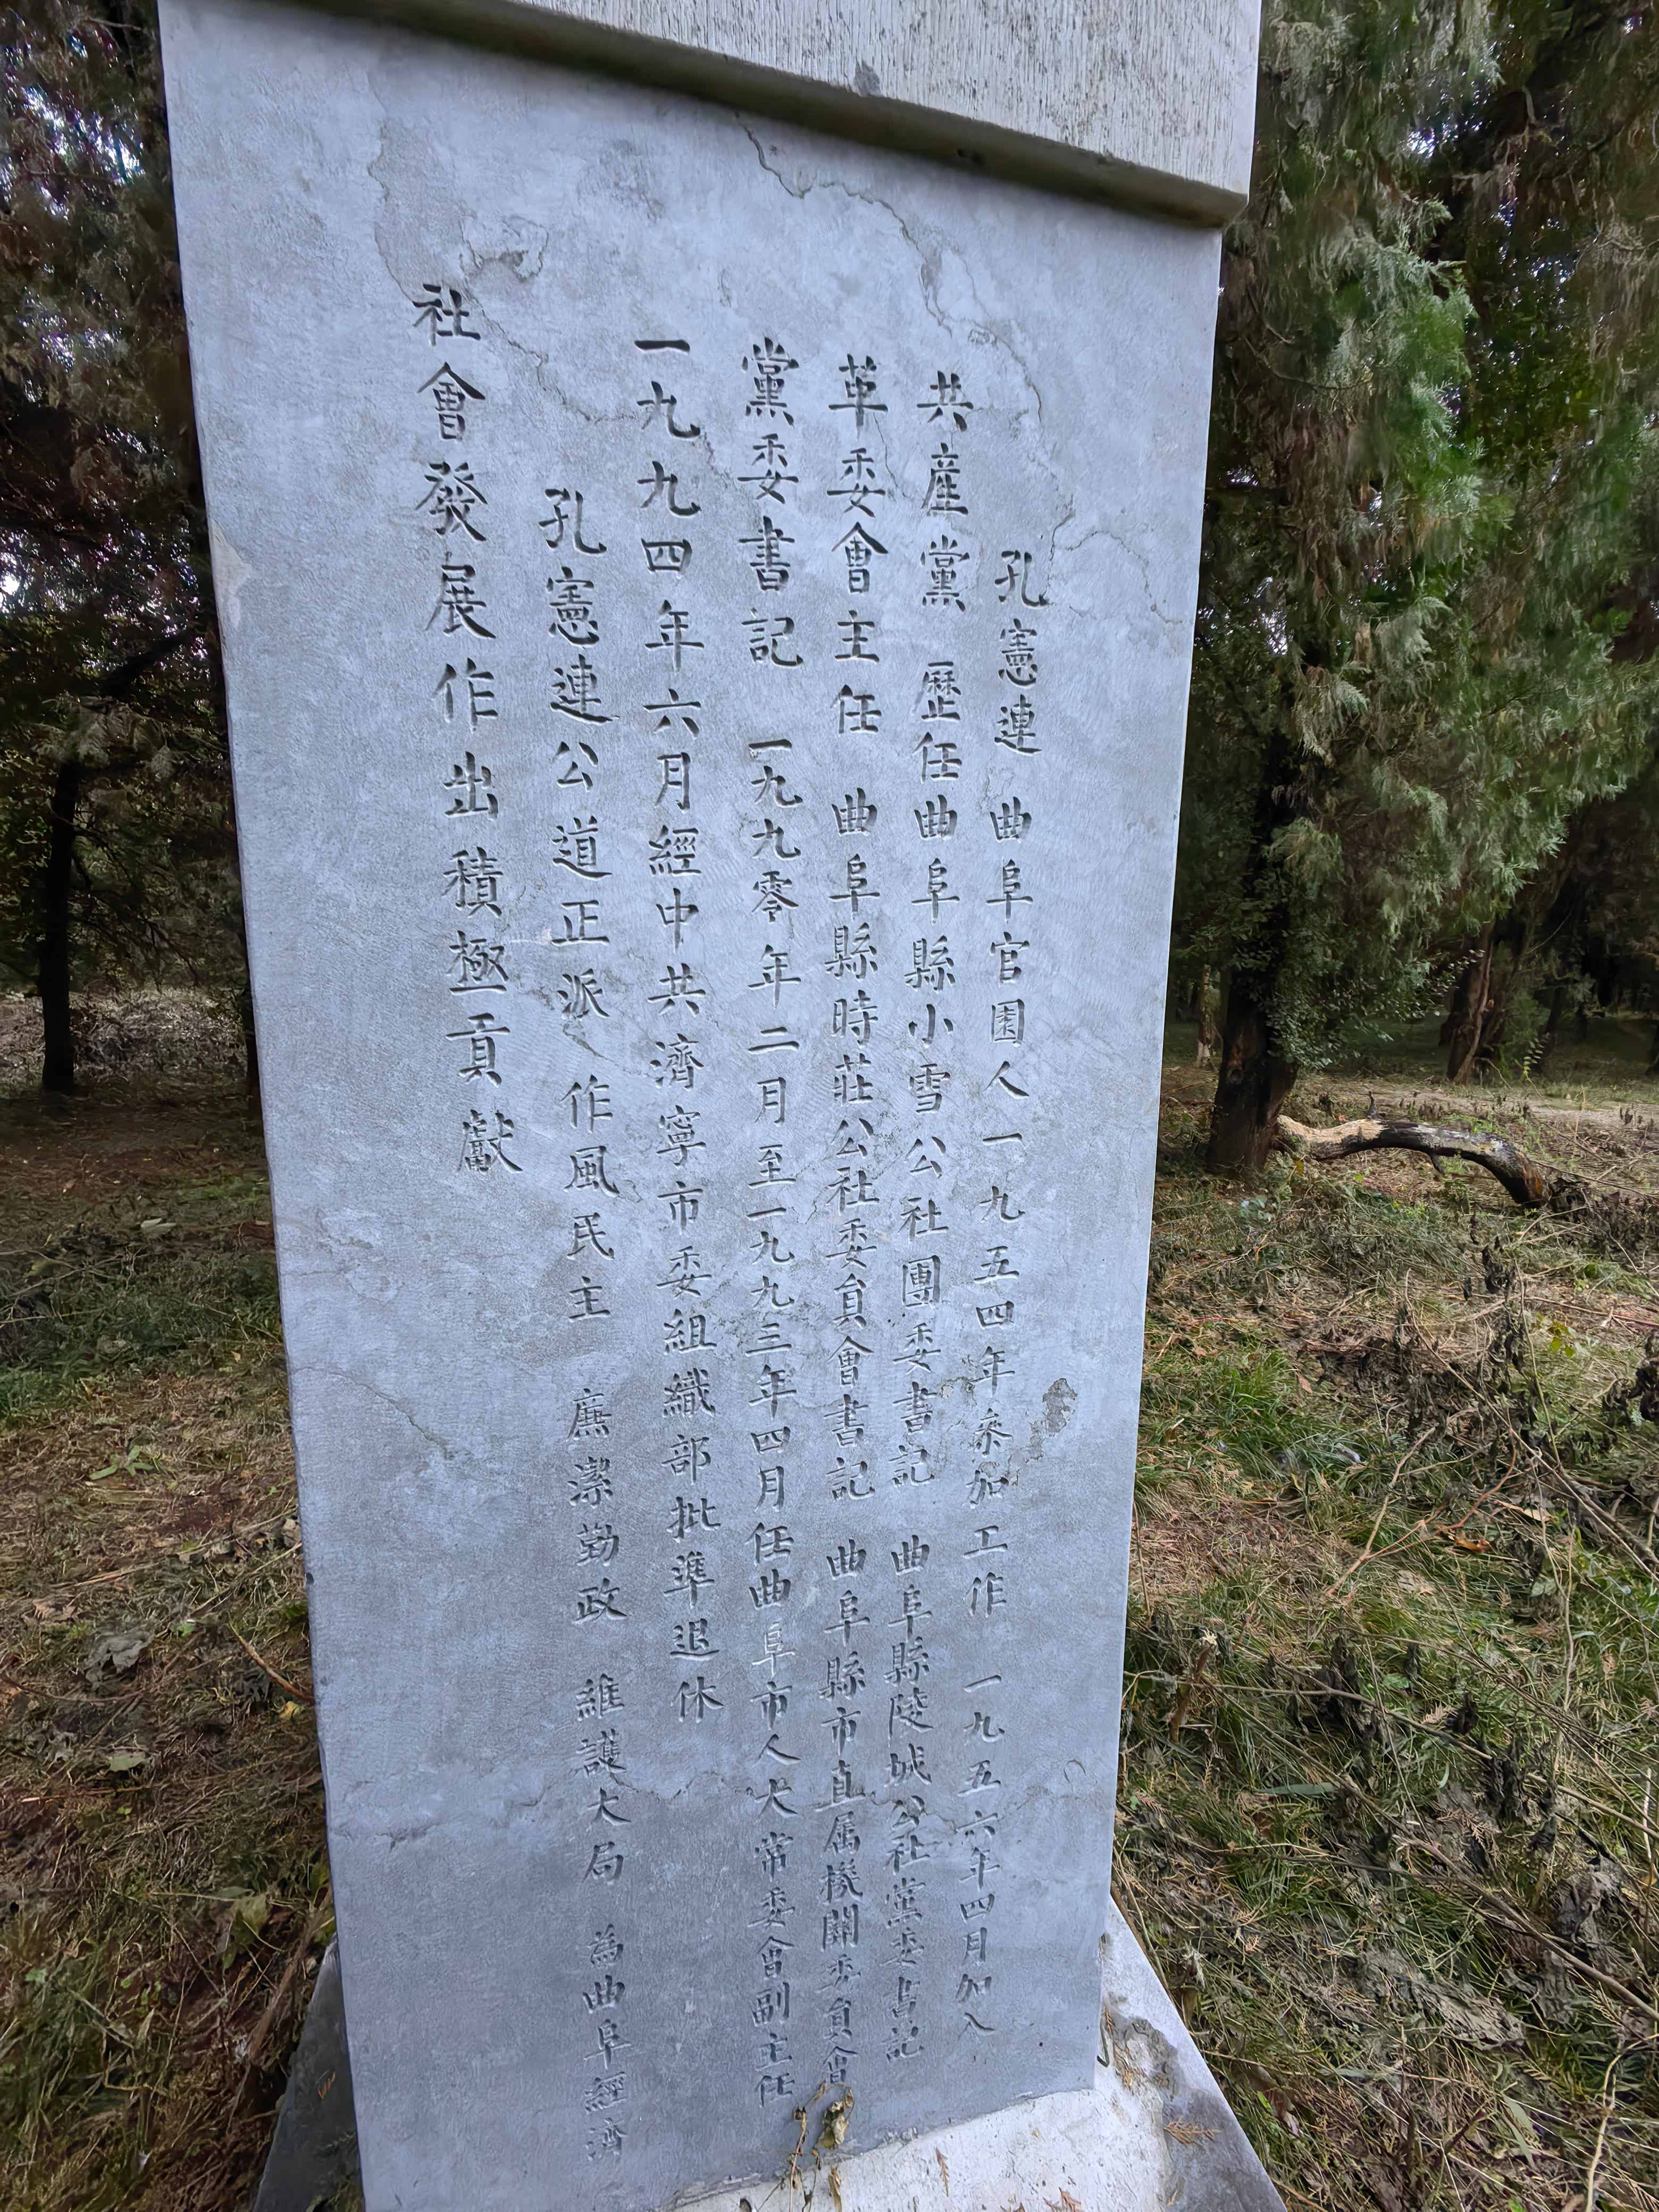 孔憲連 曲阜官園人一九五四年叅加工作 一九五六年四月加入
共産黨 歷任曲阜縣小雪公社團委書記 曲阜縣陵城公社黨委書記
革委會主任 曲阜縣時莊公社委員會書記 曲阜縣市直属機關委員會
黨委書記 一九九零年二月至一九九三年四月任曲阜市人大常委會副主任
一九九四年六月經中共濟寧市委組織部批準退休
孔憲連公道正派 作風民主 廉潔勤政 維護大局 為曲阜經濟
社會發展作出積極貢獻